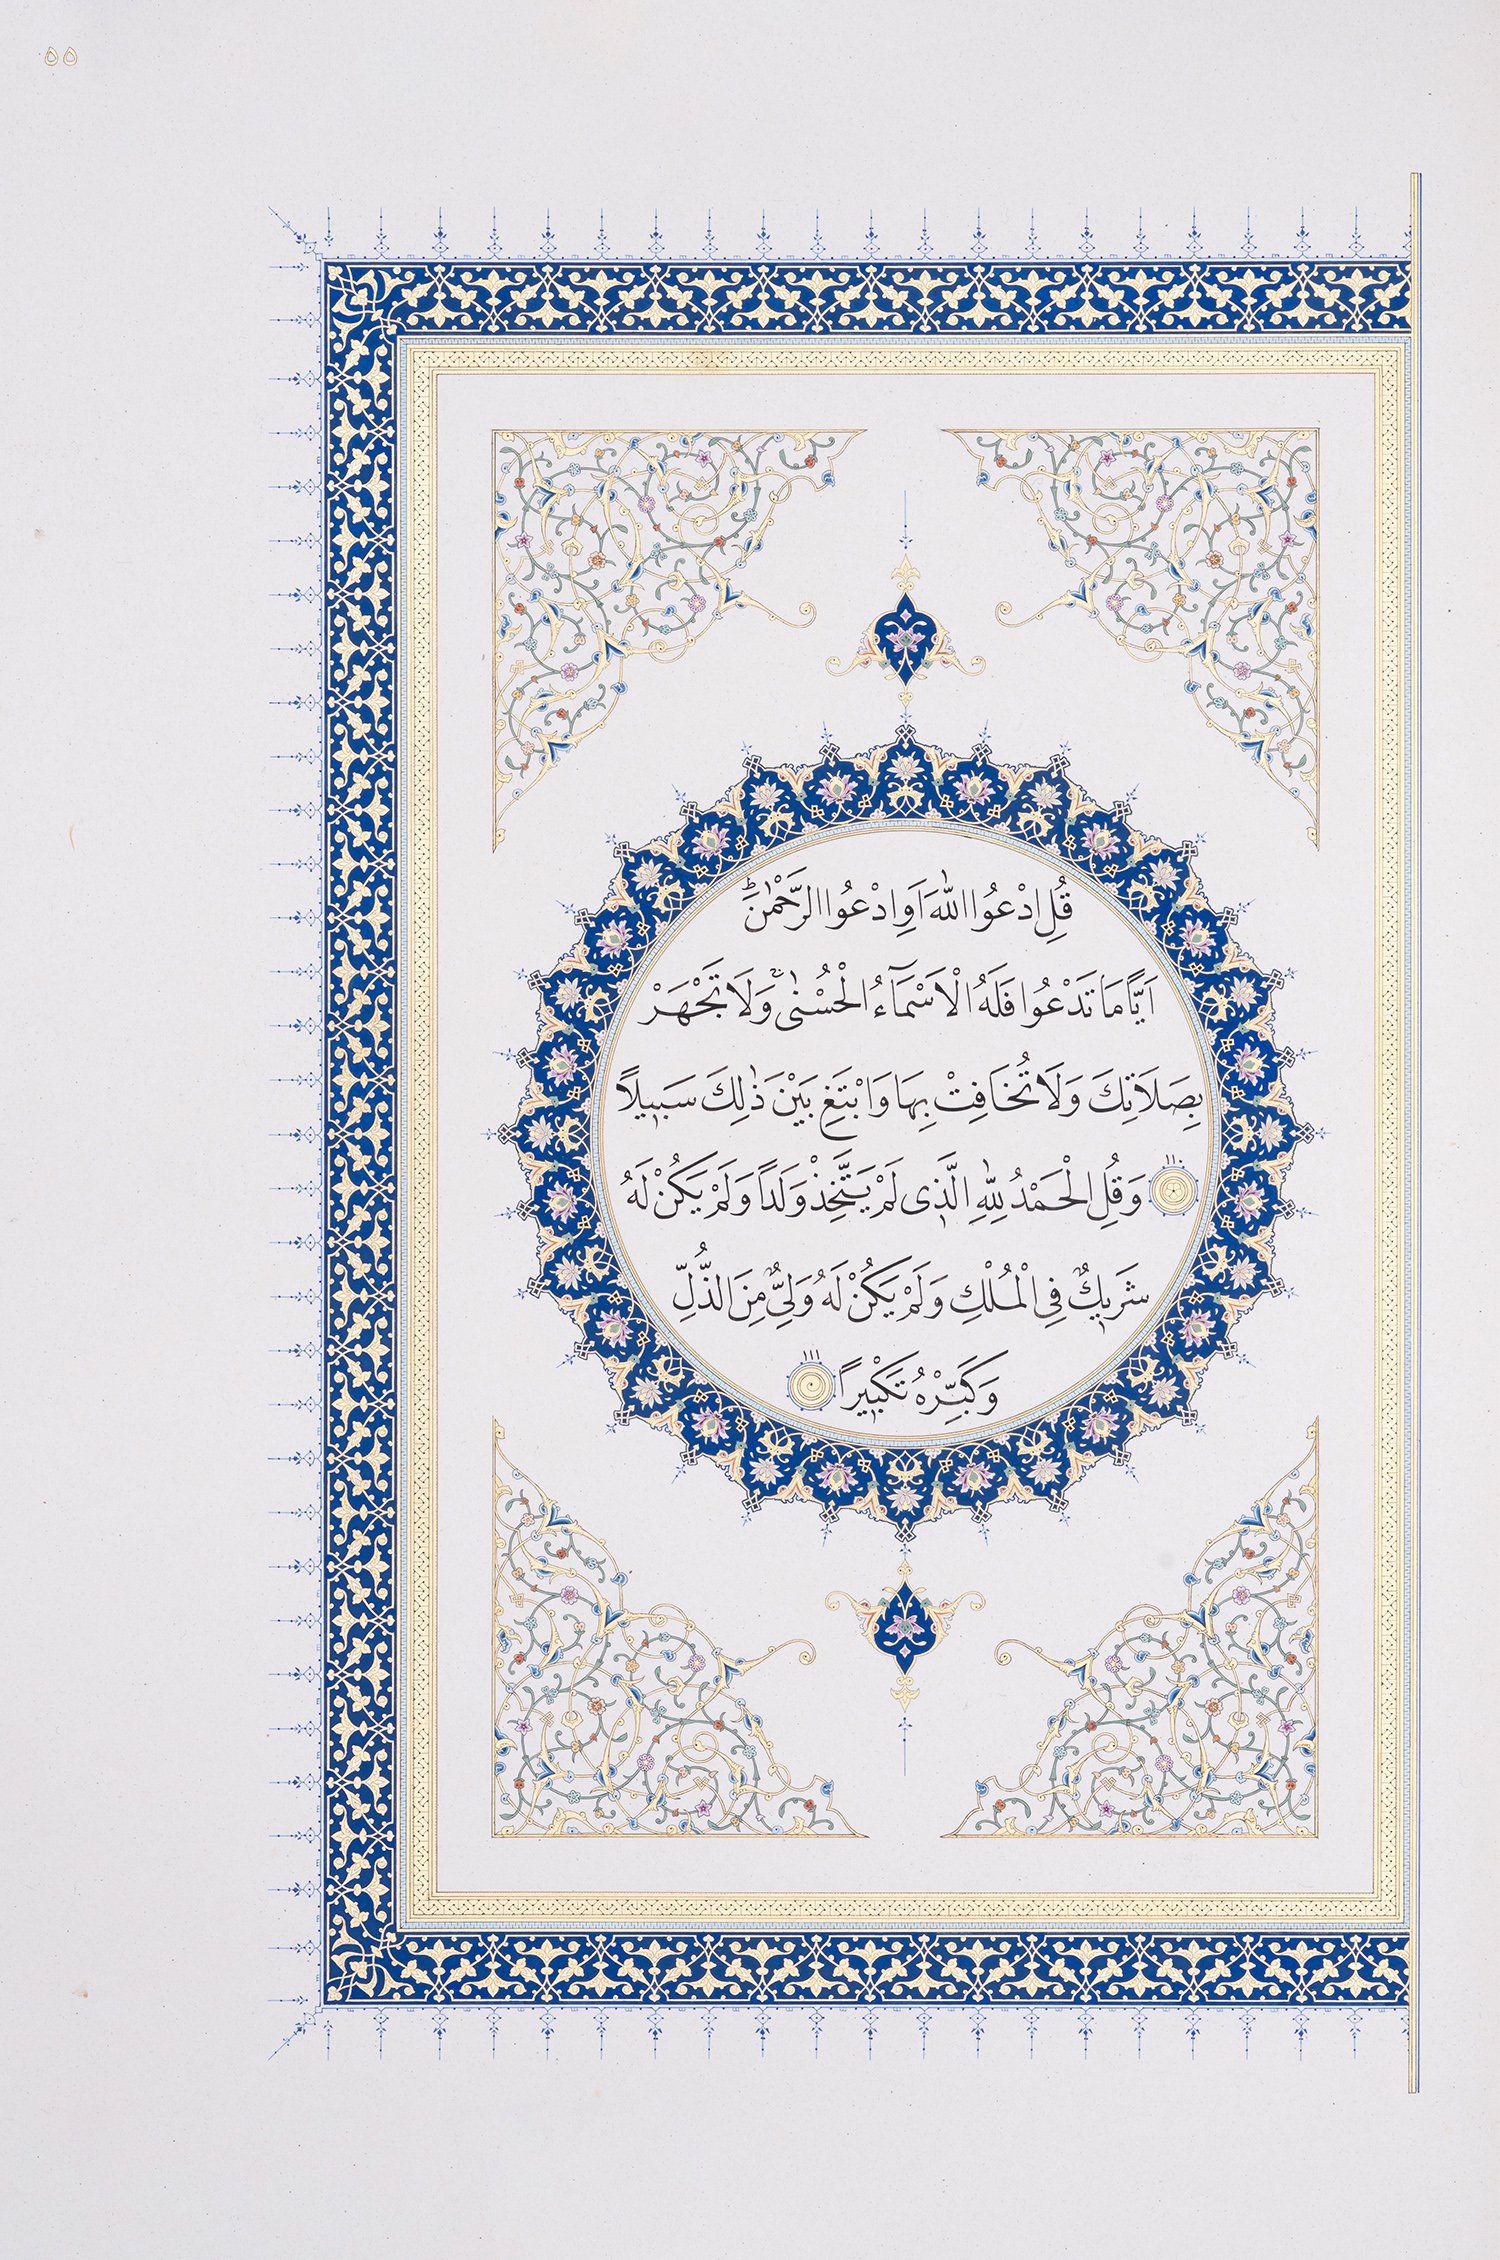 ٥٥
قُلِ ادْعُوا اللّٰهَ اَوِ ادْعُوا الرَّحْمٰنَۜ
اَيًّا مَا تَدْعُوا فَلَهُ الْاَسْمَٓاءُ الْحُسْنٰىۚ وَلَا تَجْهَرْ
بِصَلَاتِكَ وَلَا تُخَافِتْ بِهَا وَابْتَغِ بَيْنَ ذٰلِكَ سَبٖيلًا
١١٠ وَقُلِ الْحَمْدُ لِلّٰهِ الَّذٖى لَمْ يَتَّخِذْ وَلَدًا وَلَمْ يَكُنْ لَهُ
شَرٖيكٌ فِى الْمُلْكِ وَلَمْ يَكُنْ لَهُ وَلِىٌّ مِنَ الذُّلِّ
وَكَبِّرْهُ تَكْبٖيرًا ١١١